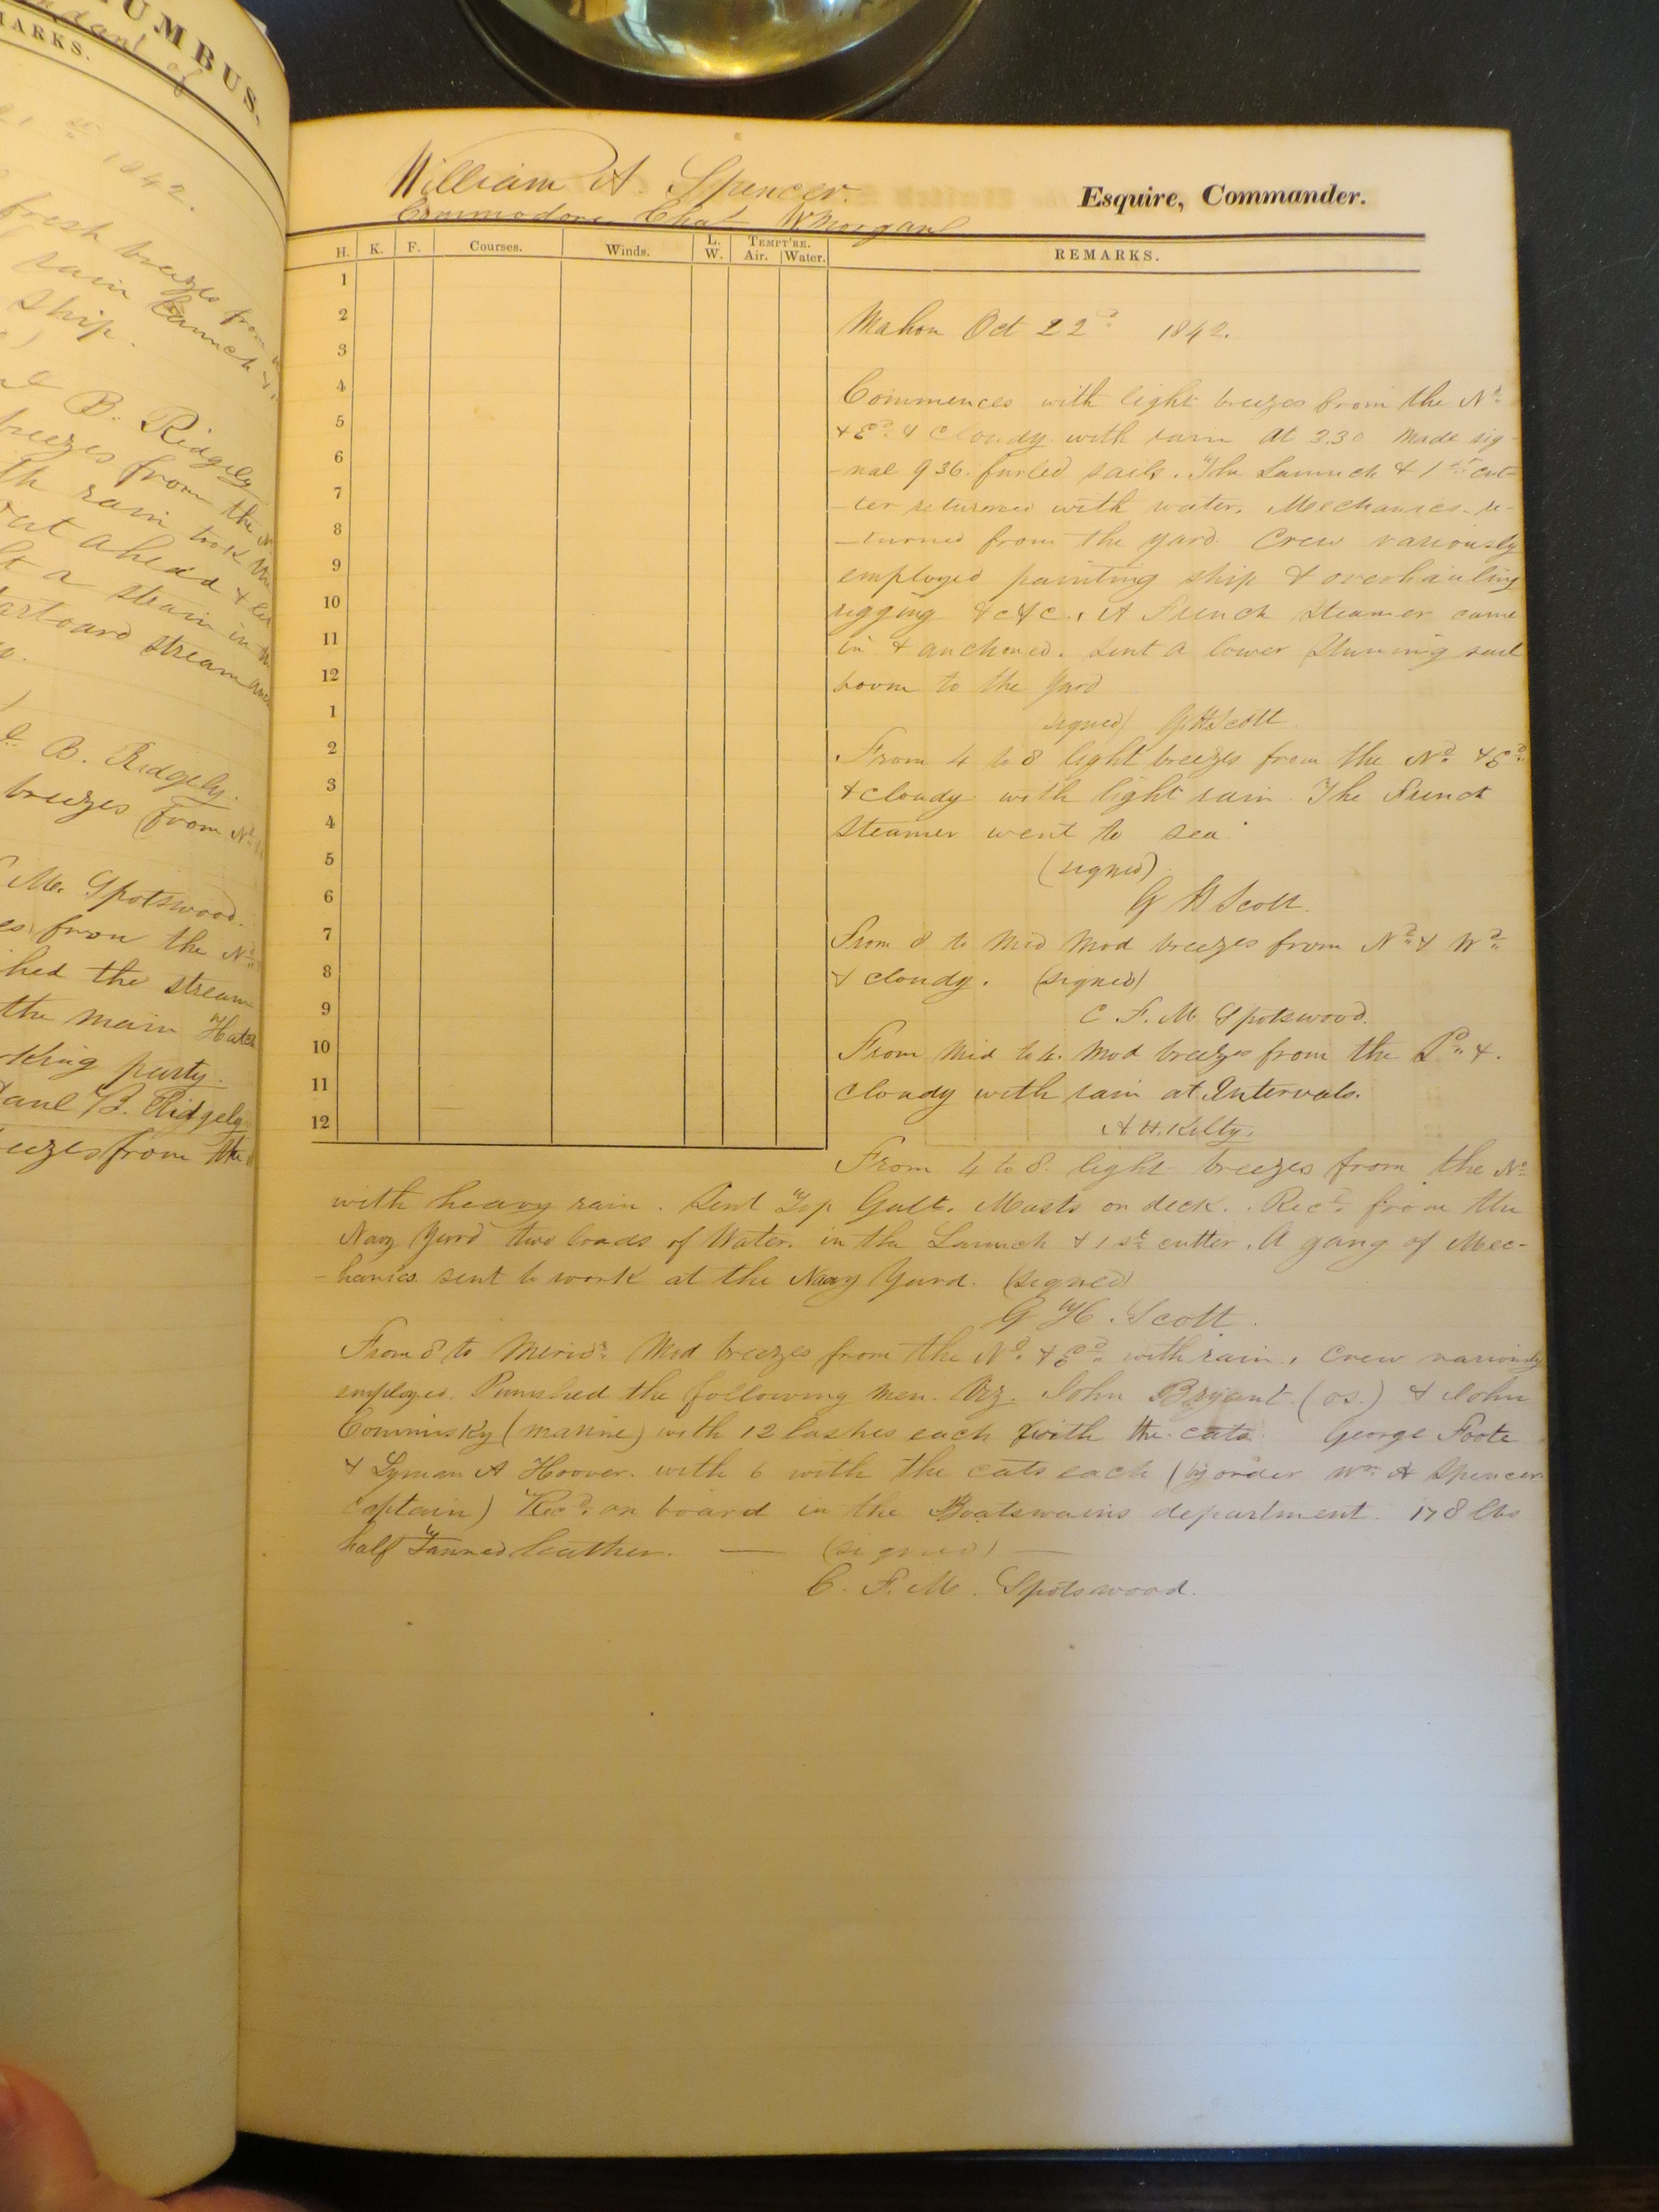 UMBUS.
ARKS.
of
1842.
fresh breezes from
rain Launch &
ship.
B. Ridgely
breezes from the N
th rain took the
at ahead &
t a steam in the
arboard stream
B. Ridgely.
breezes from Nd
M. Spotswood.
es from the Nd
hed the stream
the main Hatch
King party.
aul B. Ridgely
eezes from the
William A. Spencer. Esquire, Commander.
Commodore Chas W Morgan
H. K. F. Courses. Winds. L. W. TEMPT'RE. Air. Water. REMARKS.
1
2
3
4
5
6
7
8
9
10
11
12
1
2
3
4
5
6
7
8
9
10
11
12
Mahon Oct 22d 1842.
Commences with light breezes from the Nd
& Ed & cloudy with rain At 3.30 Made sig-
-nal 936. furled sails. The Launch & 1st cut-
-ter returned with water. Mechanics re-
-turned from the yard. Crew variously
employed painting ship & overhauling
rigging &c &c. A French Steamer came
in & anchored. Sent a lower Stunning sail
boom to the Yard
signed) G H Scott
From 4 to 8 light breezes from the Nd & Ed
& cloudy with light rain. The French
steamer went to sea.
(signed)
G H Scott.
From 8 to Mid Mod breezes from Nd & Wd
& cloudy. (signed)
C. F. M. Spotswood.
From Mid to 4. Mod breezes from the Sd &.
cloudy with rain at Intervals.
A. H. Kilty.
From 4 to 8 light breezes from the Nd
with heavy rain. Sent Top Gallt. Masts on deck. Recd. from the
Navy Yard two loads of Water. in the Launch & 1st cutter. A gang of Mec-
-hanics sent to work at the Navy Yard. (signed)
G H. Scott.
From 8 to Merid. Mod breezes from the Nd & Ed with rain. Crew variously
employed. Punished the following men. Viz. John Bryant (os.) & John
Commisky (marine) with 12 lashes each with the cats George Foote
& Lyman A Hoover. with 6 with the cats each (by order Wm A Spencer
captain) Recd. on board in the Boatswains department. 178 lbs
half Tanned leather. — (signed) —
C. F. M. Spotswood.